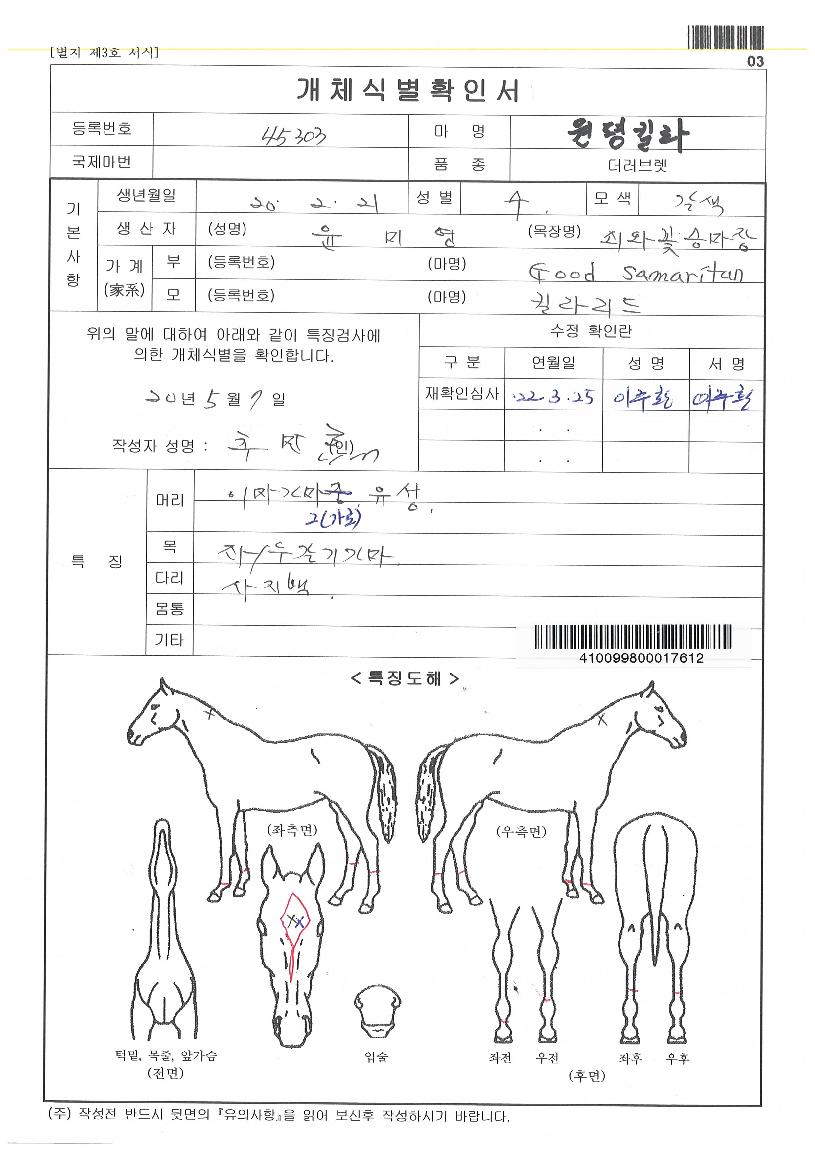 [별지 제3호 서식]
03
개체식별확인서
등록번호 45303 마 명 원뎅킬라
국제마번 품 종 더러브렛
기본사항
생년월일 20. 2. 21 성별 수. 모색 갈색
생 산 자 (성명) 윤 미 영 (목장명) 죄와꽃승마장
가 계 (家系) 부 (등록번호) (마명) Good Samaritan
모 (등록번호) (마명) 킬라리드
위의 말에 대하여 아래와 같이 특징검사에
의한 개체식별을 확인합니다.
20년 5월 7일
작성자 성명 : (인)
수정 확인란
구 분 연월일 성 명 서 명
재확인심사 .22. 3. 25 이주환 이주환
. .
. .
특 징
머리 이마가마중 유성.
2(가로)
목 좌/우갈기가마
다리 사지백.
몸통
기타
410099800017612
< 특징도해 >
(좌측면) (우측면)
턱밑, 목줄, 앞가슴 입술 좌전 우전 좌후 우후
(전면) (후면)
(주) 작성전 반드시 뒷면의 『유의사항』을 읽어 보신후 작성하시기 바랍니다.